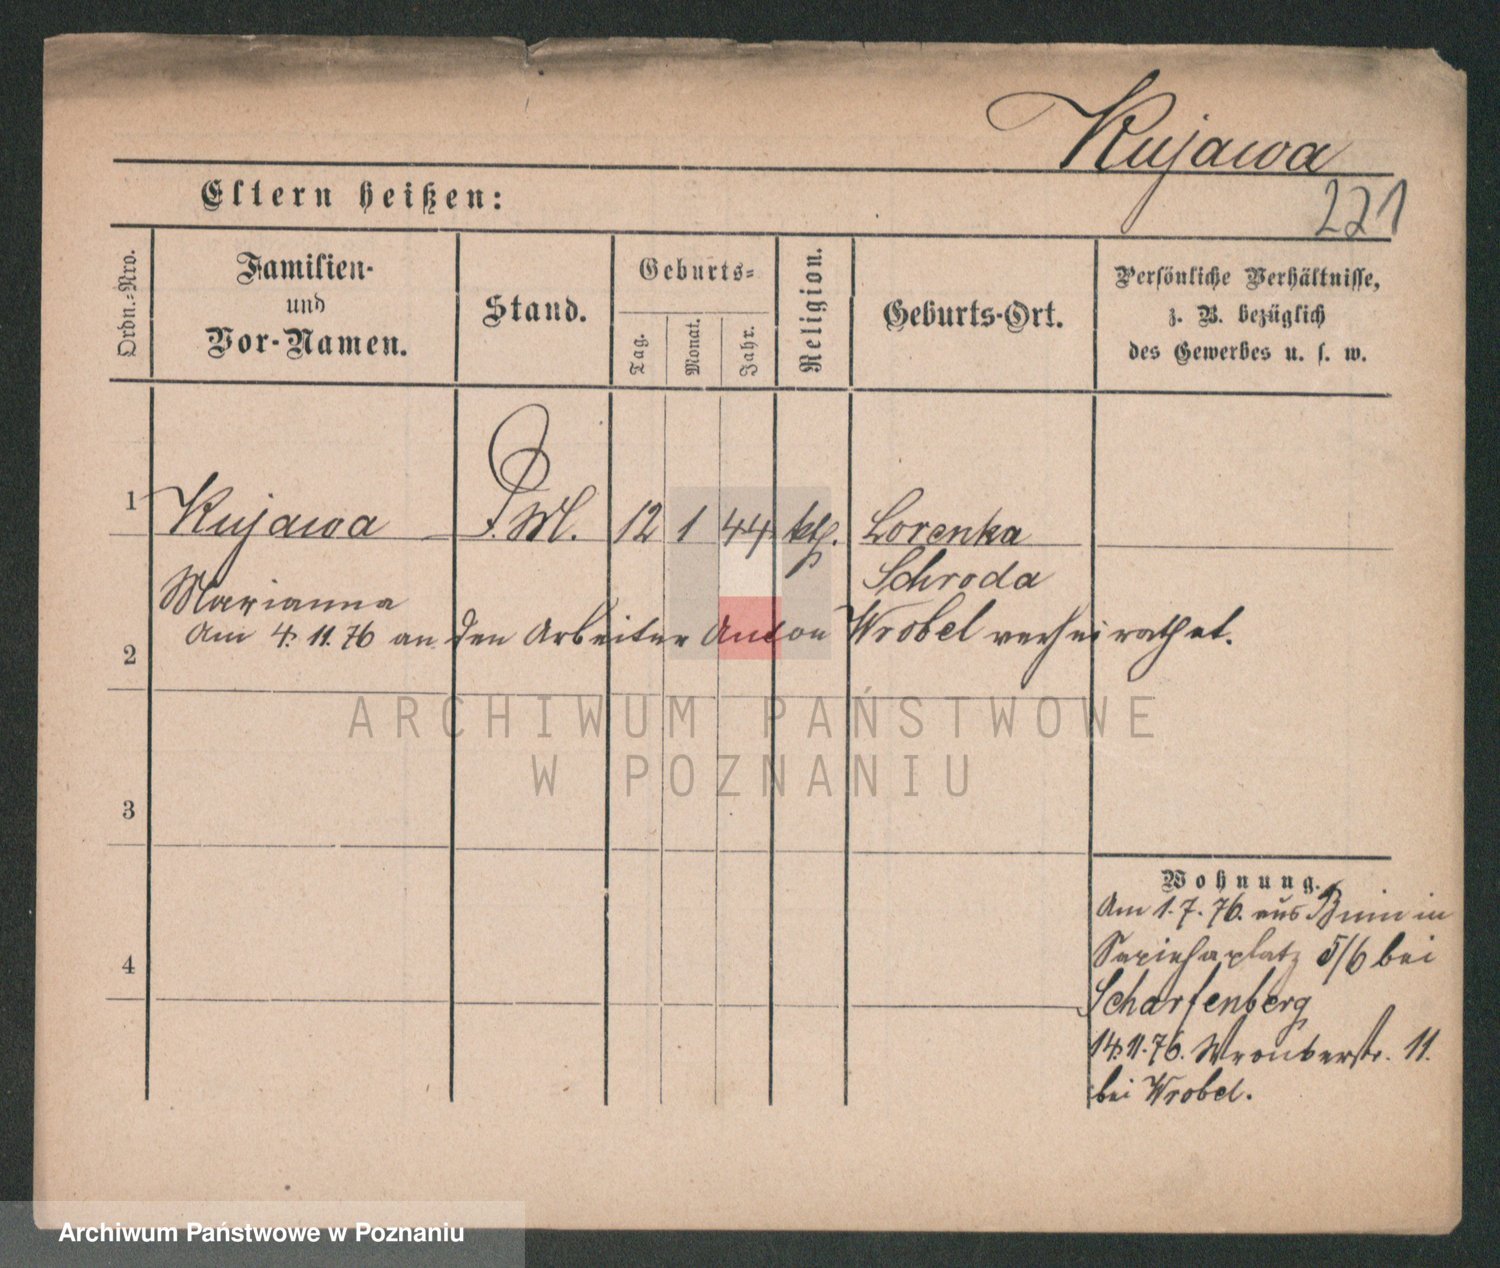 Kujawa
221
Eltern heißen:
Ordn.-Nro.
Familien-
und
Vor-Namen.
Stand.
Geburts-
Tag.
Monat.
Jahr.
Religion.
Geburts-Ort.
Persönliche Verhältnisse,
z. B. bezüglich
des Gewerbes u. s. w.
1 Kujawa D. M. 12 1 44 kth. Lorenka
Marianna Schroda
Am 4. 11. 76 an den Arbeiter Anton Wrobel verheirathet.
2
3
4
Wohnung.
Am 1. 7. 76. aus Bnin in
Sapiehaplatz 5/6 bei
Scharfenberg
14. 11. 76. Wronkerstr. 11.
bei Wrobel.
ARCHIWUM PAŃSTWOWE
W POZNANIU
Archiwum Państwowe w Poznaniu